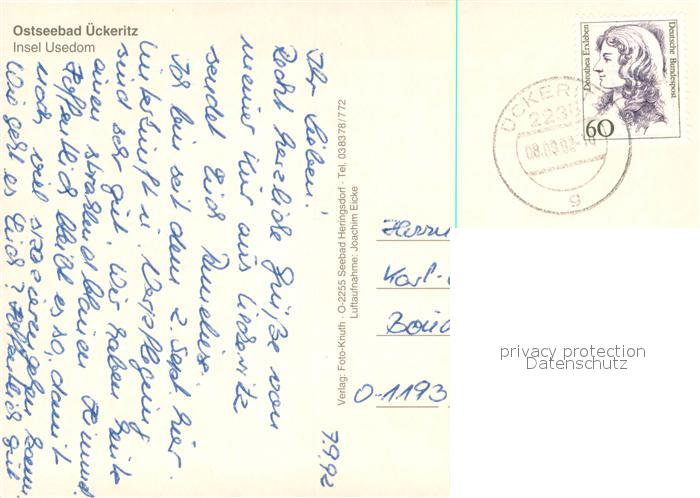 Ostseebad Ückeritz
Insel Usedom
7.9.92
Ihr Lieben!
Recht herzliche Grüße von
meiner Kur aus Ückeritz
sendet Euch Anneliese.
Ich bin seit dem 2. Sept. hier.
Unterkunft u. Verpflegung
sind sehr gut. Wir haben heute
einen strahlend blauen Himmel.
Hoffentlich bleibt es so, damit
wir viel spazierengehen können.
Wie geht es Euch? Hoffentlich gut.
Verlag: Foto-Kruth · O-2255 Seebad Heringsdorf · Tel. 038378/772
Luftaufnahme: Joachim Eicke
Herrn
Karl-
O-1193
Dorothea Erxleben
Deutsche Bundespost
60
ÜCKERI
223
08.09.92-16
g
privacy protection
Datenschutz